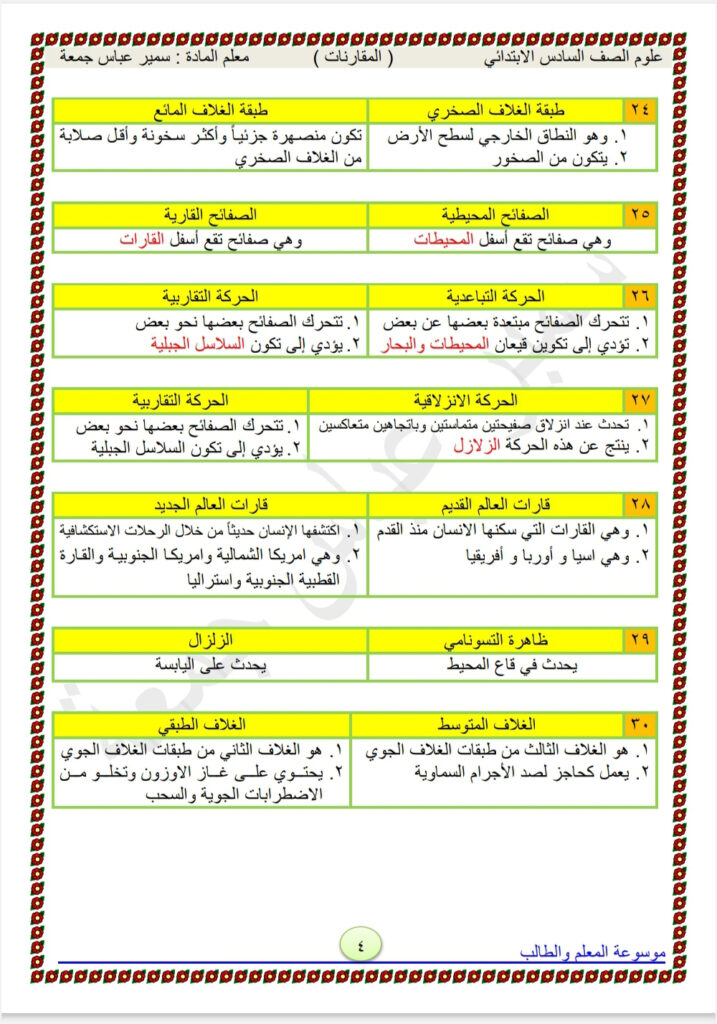 علوم الصف السادس الابتدائي ( المقارنات ) معلم المادة : سمير عباس جمعة
٢٤ طبقة الغلاف الصخري طبقة الغلاف المائع
١. وهو النطاق الخارجي لسطح الأرض
٢. يتكون من الصخور
تكون منصهرة جزئياً وأكثر سخونة وأقل صلابة
من الغلاف الصخري
٢٥ الصفائح المحيطية الصفائح القارية
وهي صفائح تقع أسفل المحيطات وهي صفائح تقع أسفل القارات
٢٦ الحركة التباعدية الحركة التقاربية
١. تتحرك الصفائح مبتعدة بعضها عن بعض
٢. تؤدي إلى تكوين قيعان المحيطات والبحار
١. تتحرك الصفائح بعضها نحو بعض
٢. يؤدي إلى تكون السلاسل الجبلية
٢٧ الحركة الانزلاقية الحركة التقاربية
١. تحدث عند انزلاق صفيحتين متماستين وباتجاهين متعاكسين
٢. ينتج عن هذه الحركة الزلازل
١. تتحرك الصفائح بعضها نحو بعض
٢. يؤدي إلى تكون السلاسل الجبلية
٢٨ قارات العالم القديم قارات العالم الجديد
١. وهي القارات التي سكنها الانسان منذ القدم
٢. وهي اسيا و أوربا و أفريقيا
١. اكتشفها الإنسان حديثاً من خلال الرحلات الاستكشافية
٢. وهي امريكا الشمالية وامريكا الجنوبية والقارة
القطبية الجنوبية واستراليا
٢٩ ظاهرة التسونامي الزلزال
يحدث في قاع المحيط يحدث على اليابسة
٣٠ الغلاف المتوسط الغلاف الطبقي
١. هو الغلاف الثالث من طبقات الغلاف الجوي
٢. يعمل كحاجز لصد الأجرام السماوية
١. هو الغلاف الثاني من طبقات الغلاف الجوي
٢. يحتوي على غاز الاوزون وتخلو من
الاضطرابات الجوية والسحب
٤
موسوعة المعلم والطالب